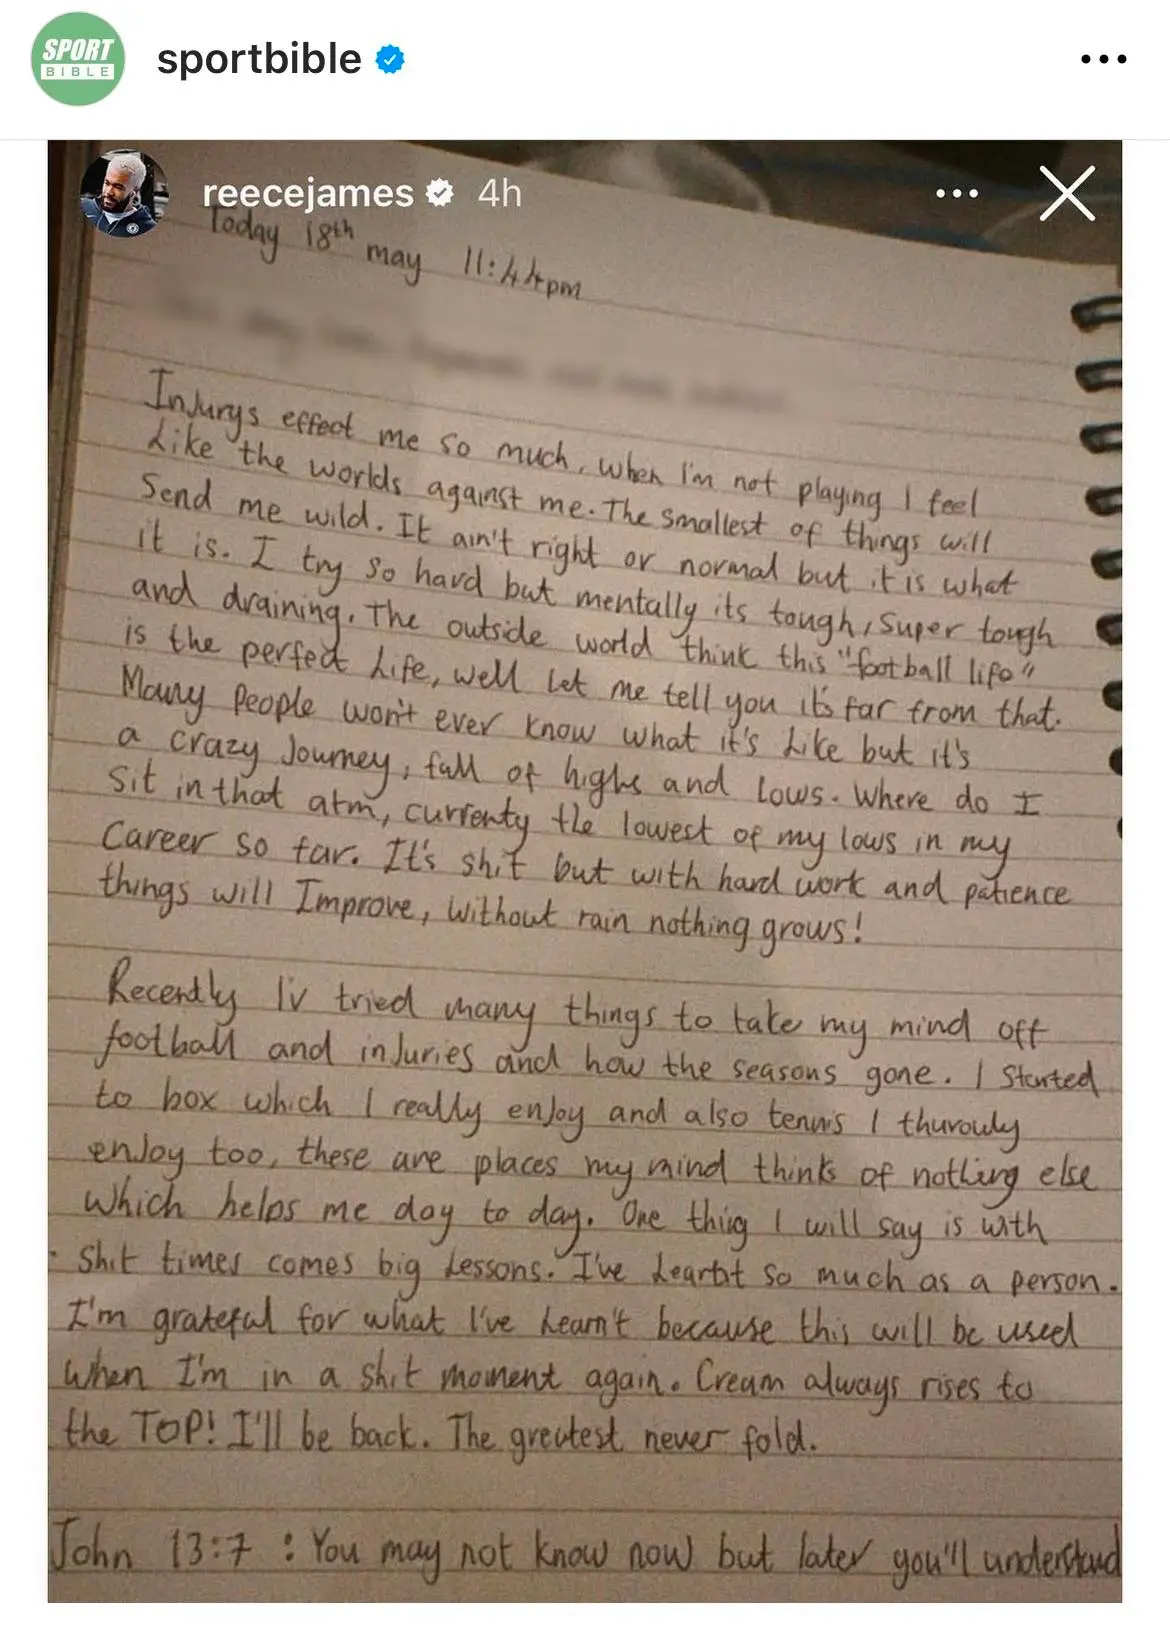 SPORT
BIBLE
sportbible
reecejames 4h
Today 18th may 11:44pm
Injurys effect me so much, when I'm not playing I feel
Like the worlds against me. The smallest of things will
Send me wild. It ain't right or normal but it is what
it is. I try so hard but mentally its tough, Super tough
and draining. The outside world think this "football life"
is the perfect Life, well let me tell you it's far from that.
Many People won't ever know what it's Like but it's
a crazy Journey, full of highs and Lows. Where do I
Sit in that atm, currenty the lowest of my lows in my
Career so far. It's shit but with hard work and patience
things will Improve, without rain nothing grows!
Recently Iv tried many things to take my mind off
football and inJuries and how the seasons gone. I Started
to box which I really enJoy and also tennis I thurouly
enJoy too, these are places my mind thinks of nothing else
which helps me day to day. One thing I will say is with
Shit times comes big Lessons. I've Learnt so much as a person.
I'm grateful for what I've Learn't because this will be used
when I'm in a shit moment again. Cream always rises to
the TOP! I'll be back. The greatest never fold.
John 13:7 : You may not know now but later you'll understand